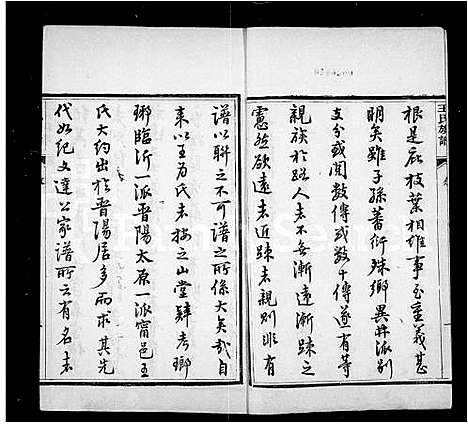 王氏族譜
根是庇枝葉相維事至重義甚
明矣雖子孫蕃衍殊鄉異井派別
支分或閱數傳或數十傳遂有等
親族於路人者不無漸遠漸踈之
憲然欲遠者近踈者親則非有
譜以聯之不可譜之所係大矣哉自
來以王為氏者按之山堂肆考瑯
琊臨沂一派晋陽太原一派甯邑王
氏大約出於晋陽居多而求其先
代如紀文達公家譜所云有名者